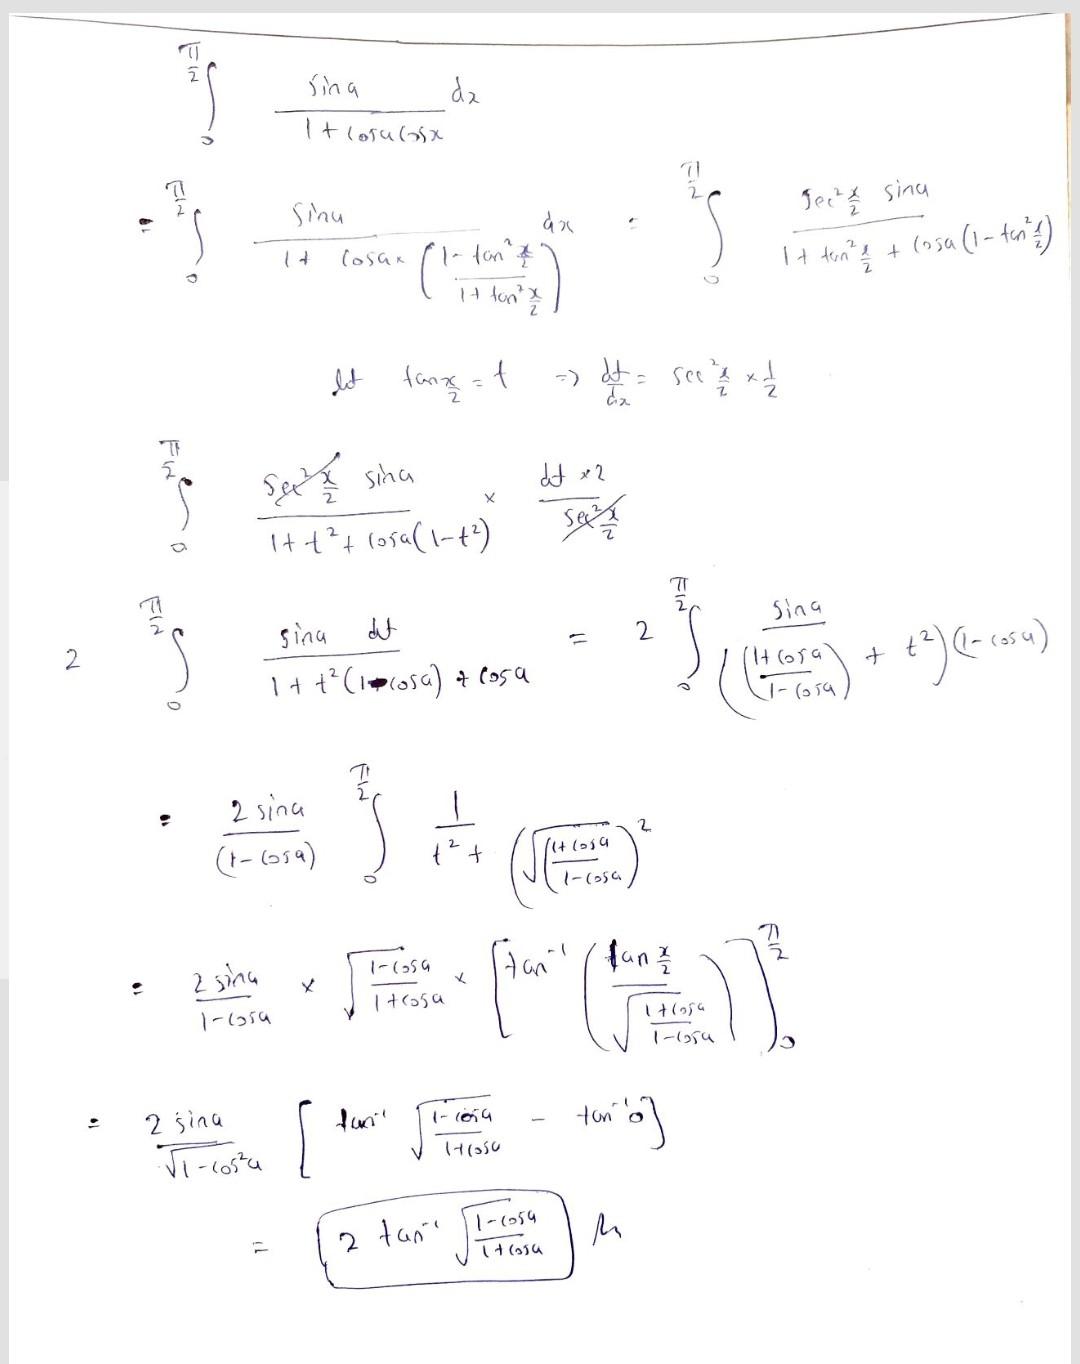 ∫₀^{π/2} sin a / (1 + cos a cos x) dx
= ∫₀^{π/2} sin a / (1 + cos a × ((1 - tan² x/2) / (1 + tan² x/2))) dx = ∫₀^{π/2} sec² x/2 sin a / (1 + tan² x/2 + cos a (1 - tan² x/2))
let tan x/2 = t => dt/dx = sec² x/2 × 1/2
∫₀^{π/2} sec² x/2 sin a / (1 + t² + cos a (1 - t²)) × dt × 2 / sec² x/2
2 ∫₀^{π/2} sin a dt / (1 + t² (1 - cos a) + cos a) = 2 ∫₀^{π/2} sin a / (((1 + cos a)/(1 - cos a) + t²)(1 - cos a))
= 2 sin a / (1 - cos a) ∫₀^{π/2} 1 / (t² + (√((1 + cos a)/(1 - cos a)))²)
= 2 sin a / (1 - cos a) × √((1 - cos a)/(1 + cos a)) × [tan⁻¹ (tan x/2 / √((1 + cos a)/(1 - cos a)))]₀^{π/2}
= 2 sin a / √(1 - cos² a) [tan⁻¹ √((1 - cos a)/(1 + cos a)) - tan⁻¹ 0]
= 2 tan⁻¹ √((1 - cos a)/(1 + cos a))